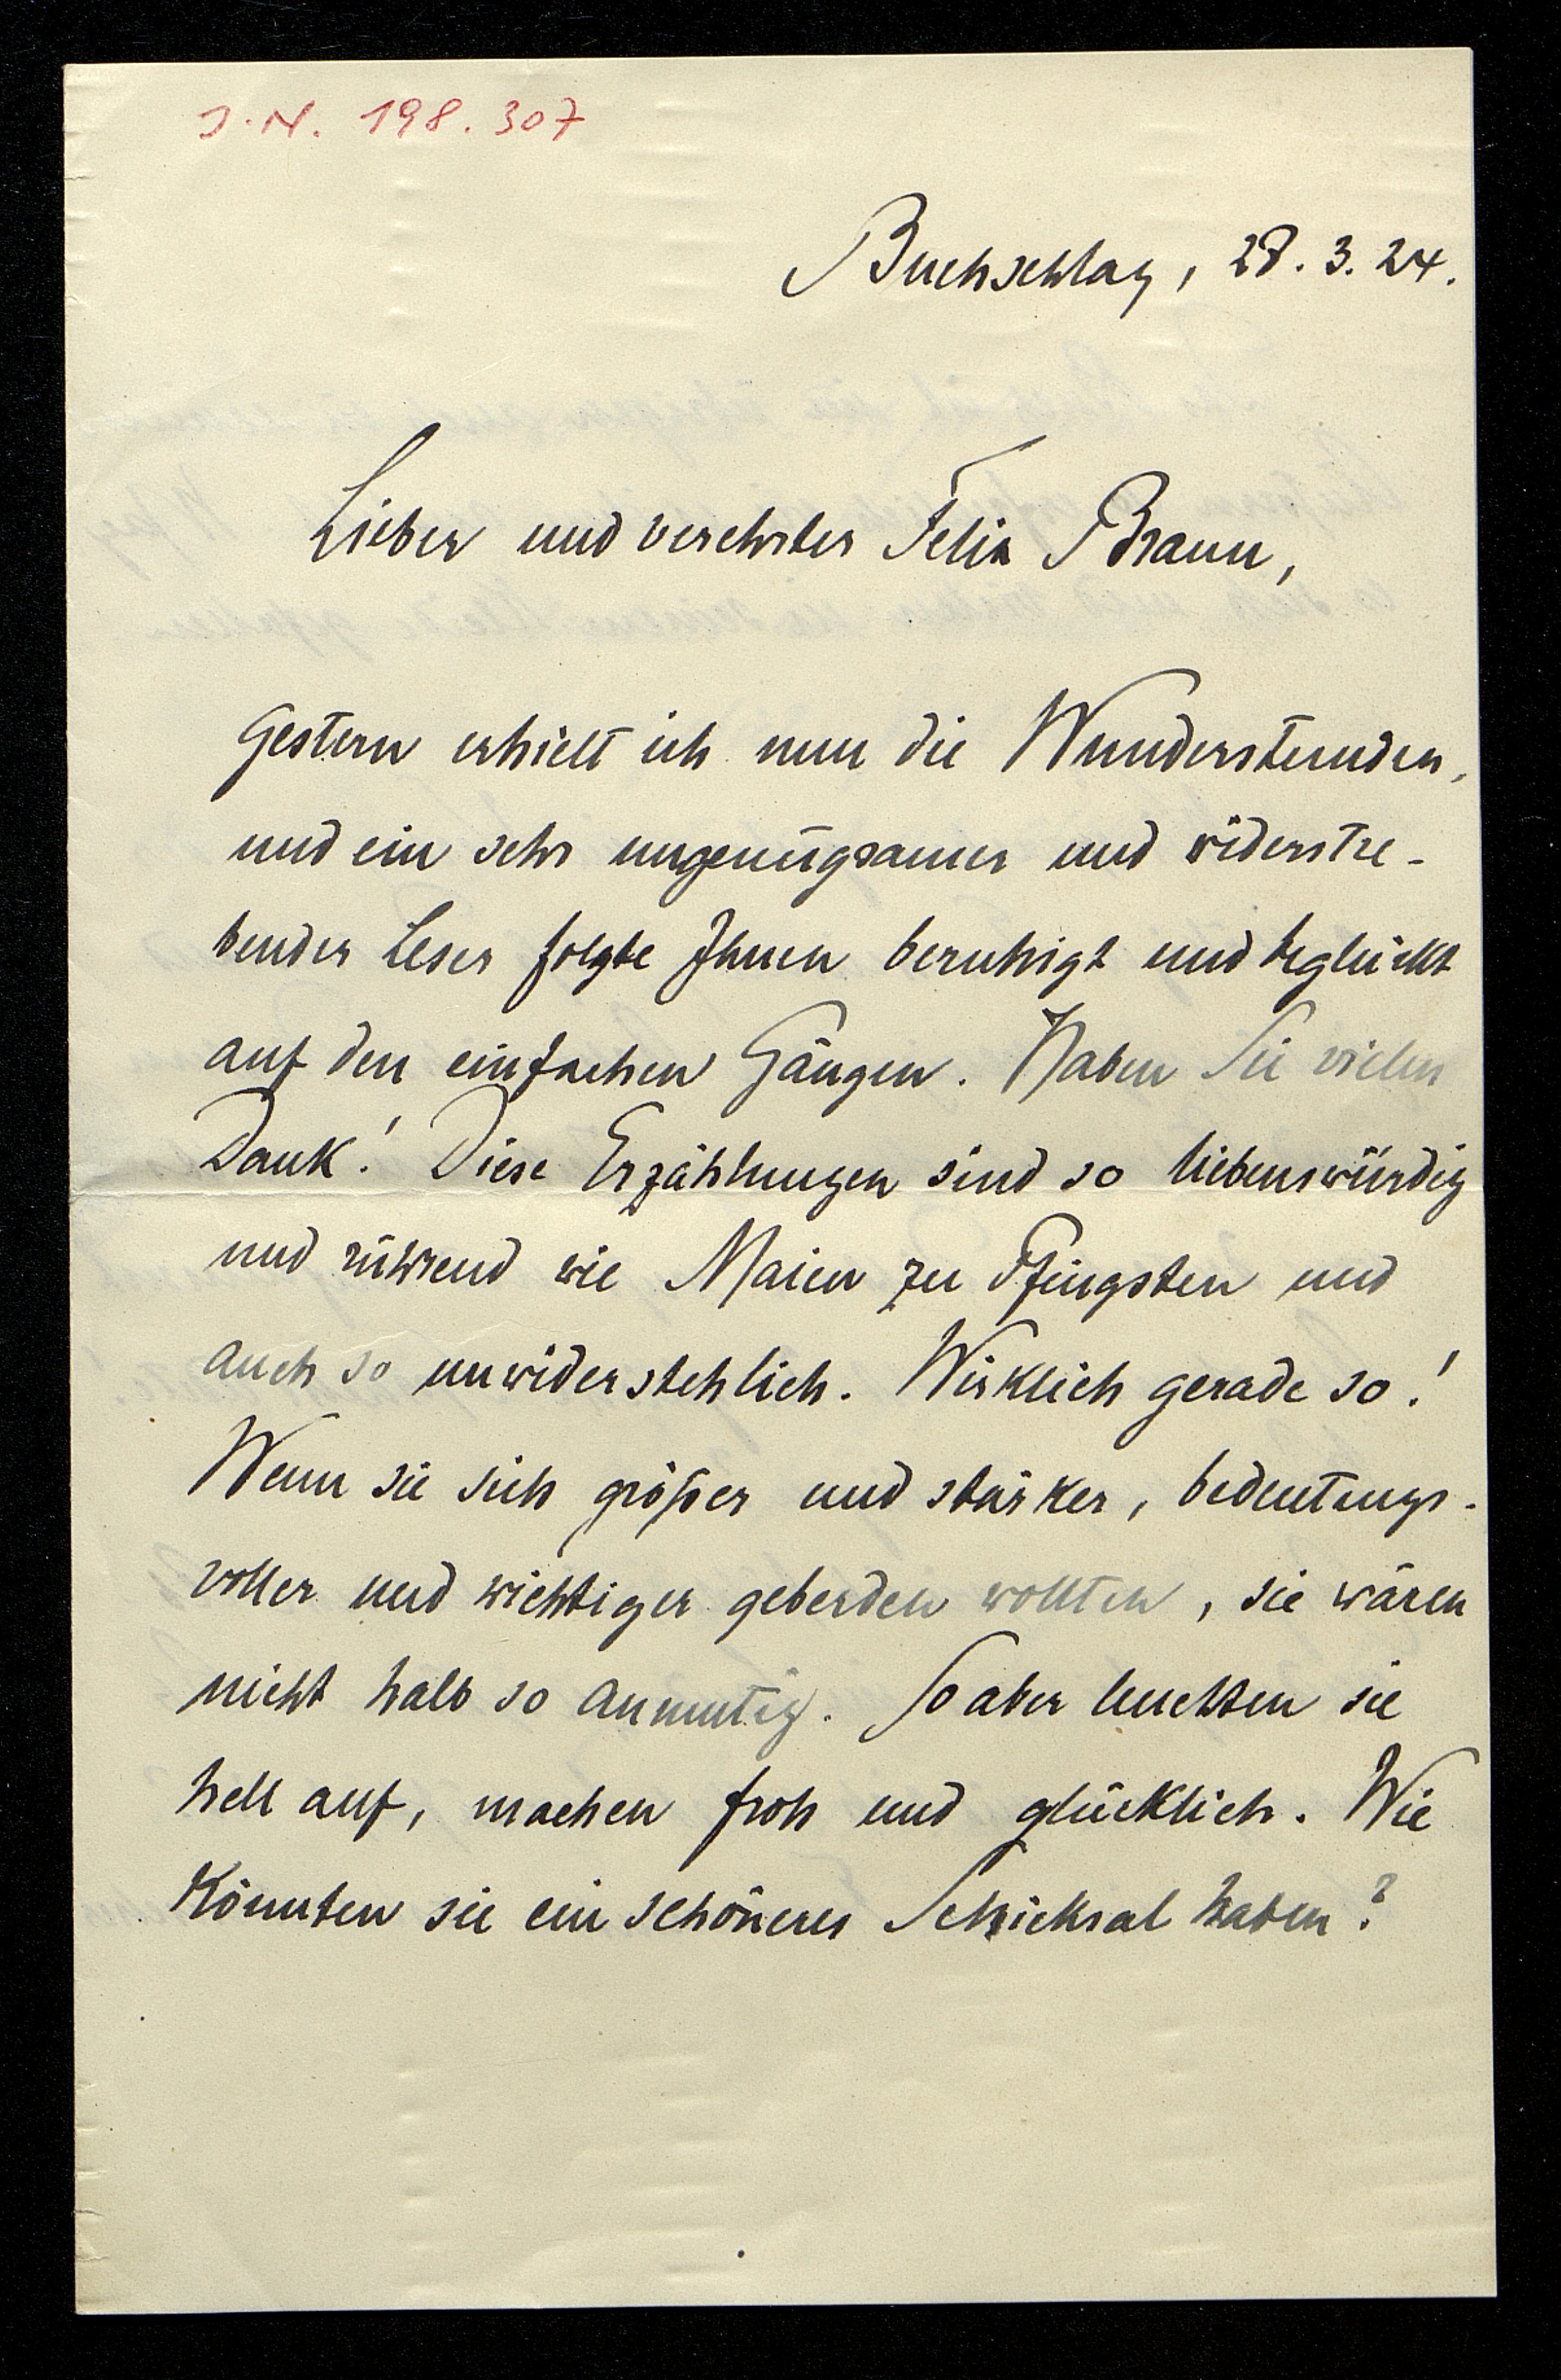 J.N. 198.307
Buchschlag, 28. 3. 24.
Lieber und verehrter Felix Braun,
gestern erhielt ich nun die Wunderstunden,
und ein sehr ungenügsamer und widerstre-
bender Leser folgte Ihnen beruhigt und beglückt
auf den einfachen Gängen. Haben Sie vielen
Dank! Diese Erzählungen sind so liebenswürdig
und rührend wie Maien zu Pfingsten und
auch so unwiderstehlich. Wirklich gerade so!
Wenn sie sich größer und stärker, bedeutungs-
voller und wichtiger geberden wollten, sie wären
nicht halb so anmutig. So aber leuchten sie
hell auf, machen froh und glücklich. Wie
könnten sie ein schöneres Schicksal haben?